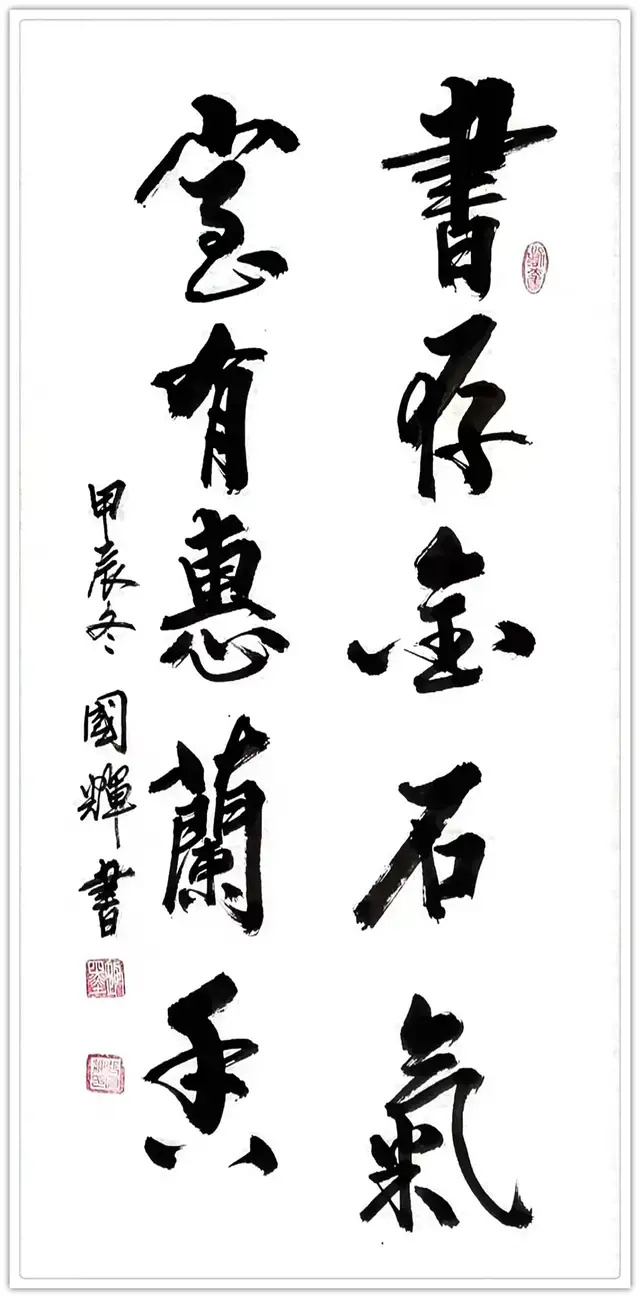 書存金石氣
室有惠蘭香
甲辰冬 國輝書